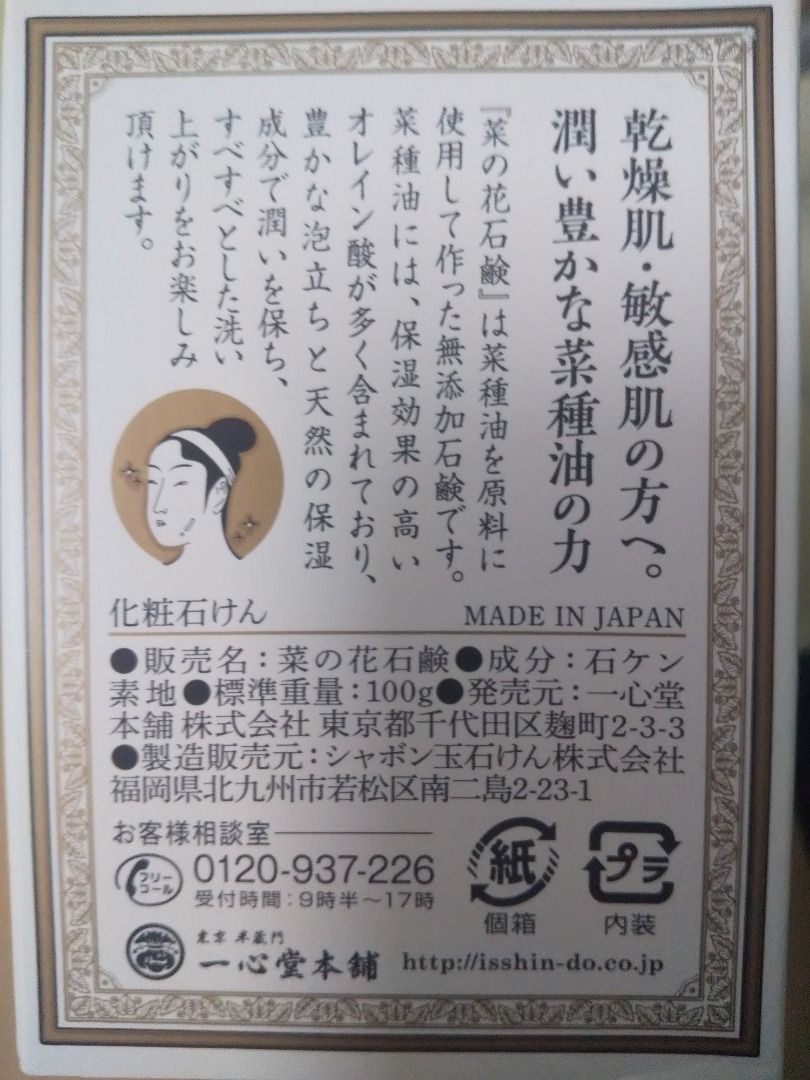 乾燥肌・敏感肌の方へ。
潤い豊かな菜種油の力
『菜の花石鹸』は菜種油を原料に
使用して作った無添加石鹸です。
菜種油には、保湿効果の高い
オレイン酸が多く含まれており、
豊かな泡立ちと天然の保湿
成分で潤いを保ち、
すべすべとした洗い
上がりをお楽しみ
頂けます。
化粧石けん MADE IN JAPAN
●販売名：菜の花石鹸●成分：石ケン
素地●標準重量：100g●発売元：一心堂
本舗 株式会社 東京都千代田区麹町2-3-3
●製造販売元：シャボン玉石けん株式会社
福岡県北九州市若松区南二島2-23-1
お客様相談室
フリー
コール
0120-937-226
受付時間：9時半〜17時
紙
個箱
プラ
内装
東京 半蔵門
一心堂本舗 http://isshin-do.co.jp